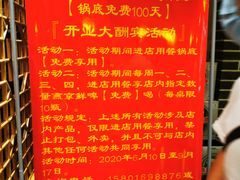 锅底免费100天】
『开业大酬宾活动』
活动一：活动期间进店用餐锅底
【免费享用】。
活动二：活动期间每周一、二、
三、四，进店用餐店内指定数
量燕京鲜啤【免费】喝（每桌限
10瓶）
活动规定：上述所有活动涉及店
内产品，仅限进店用餐享用，禁
止打包、外卖，并且不可与店内
其他任何活动共同享用。
活动时间：2020年6月10日至9月
17日。
15801698876